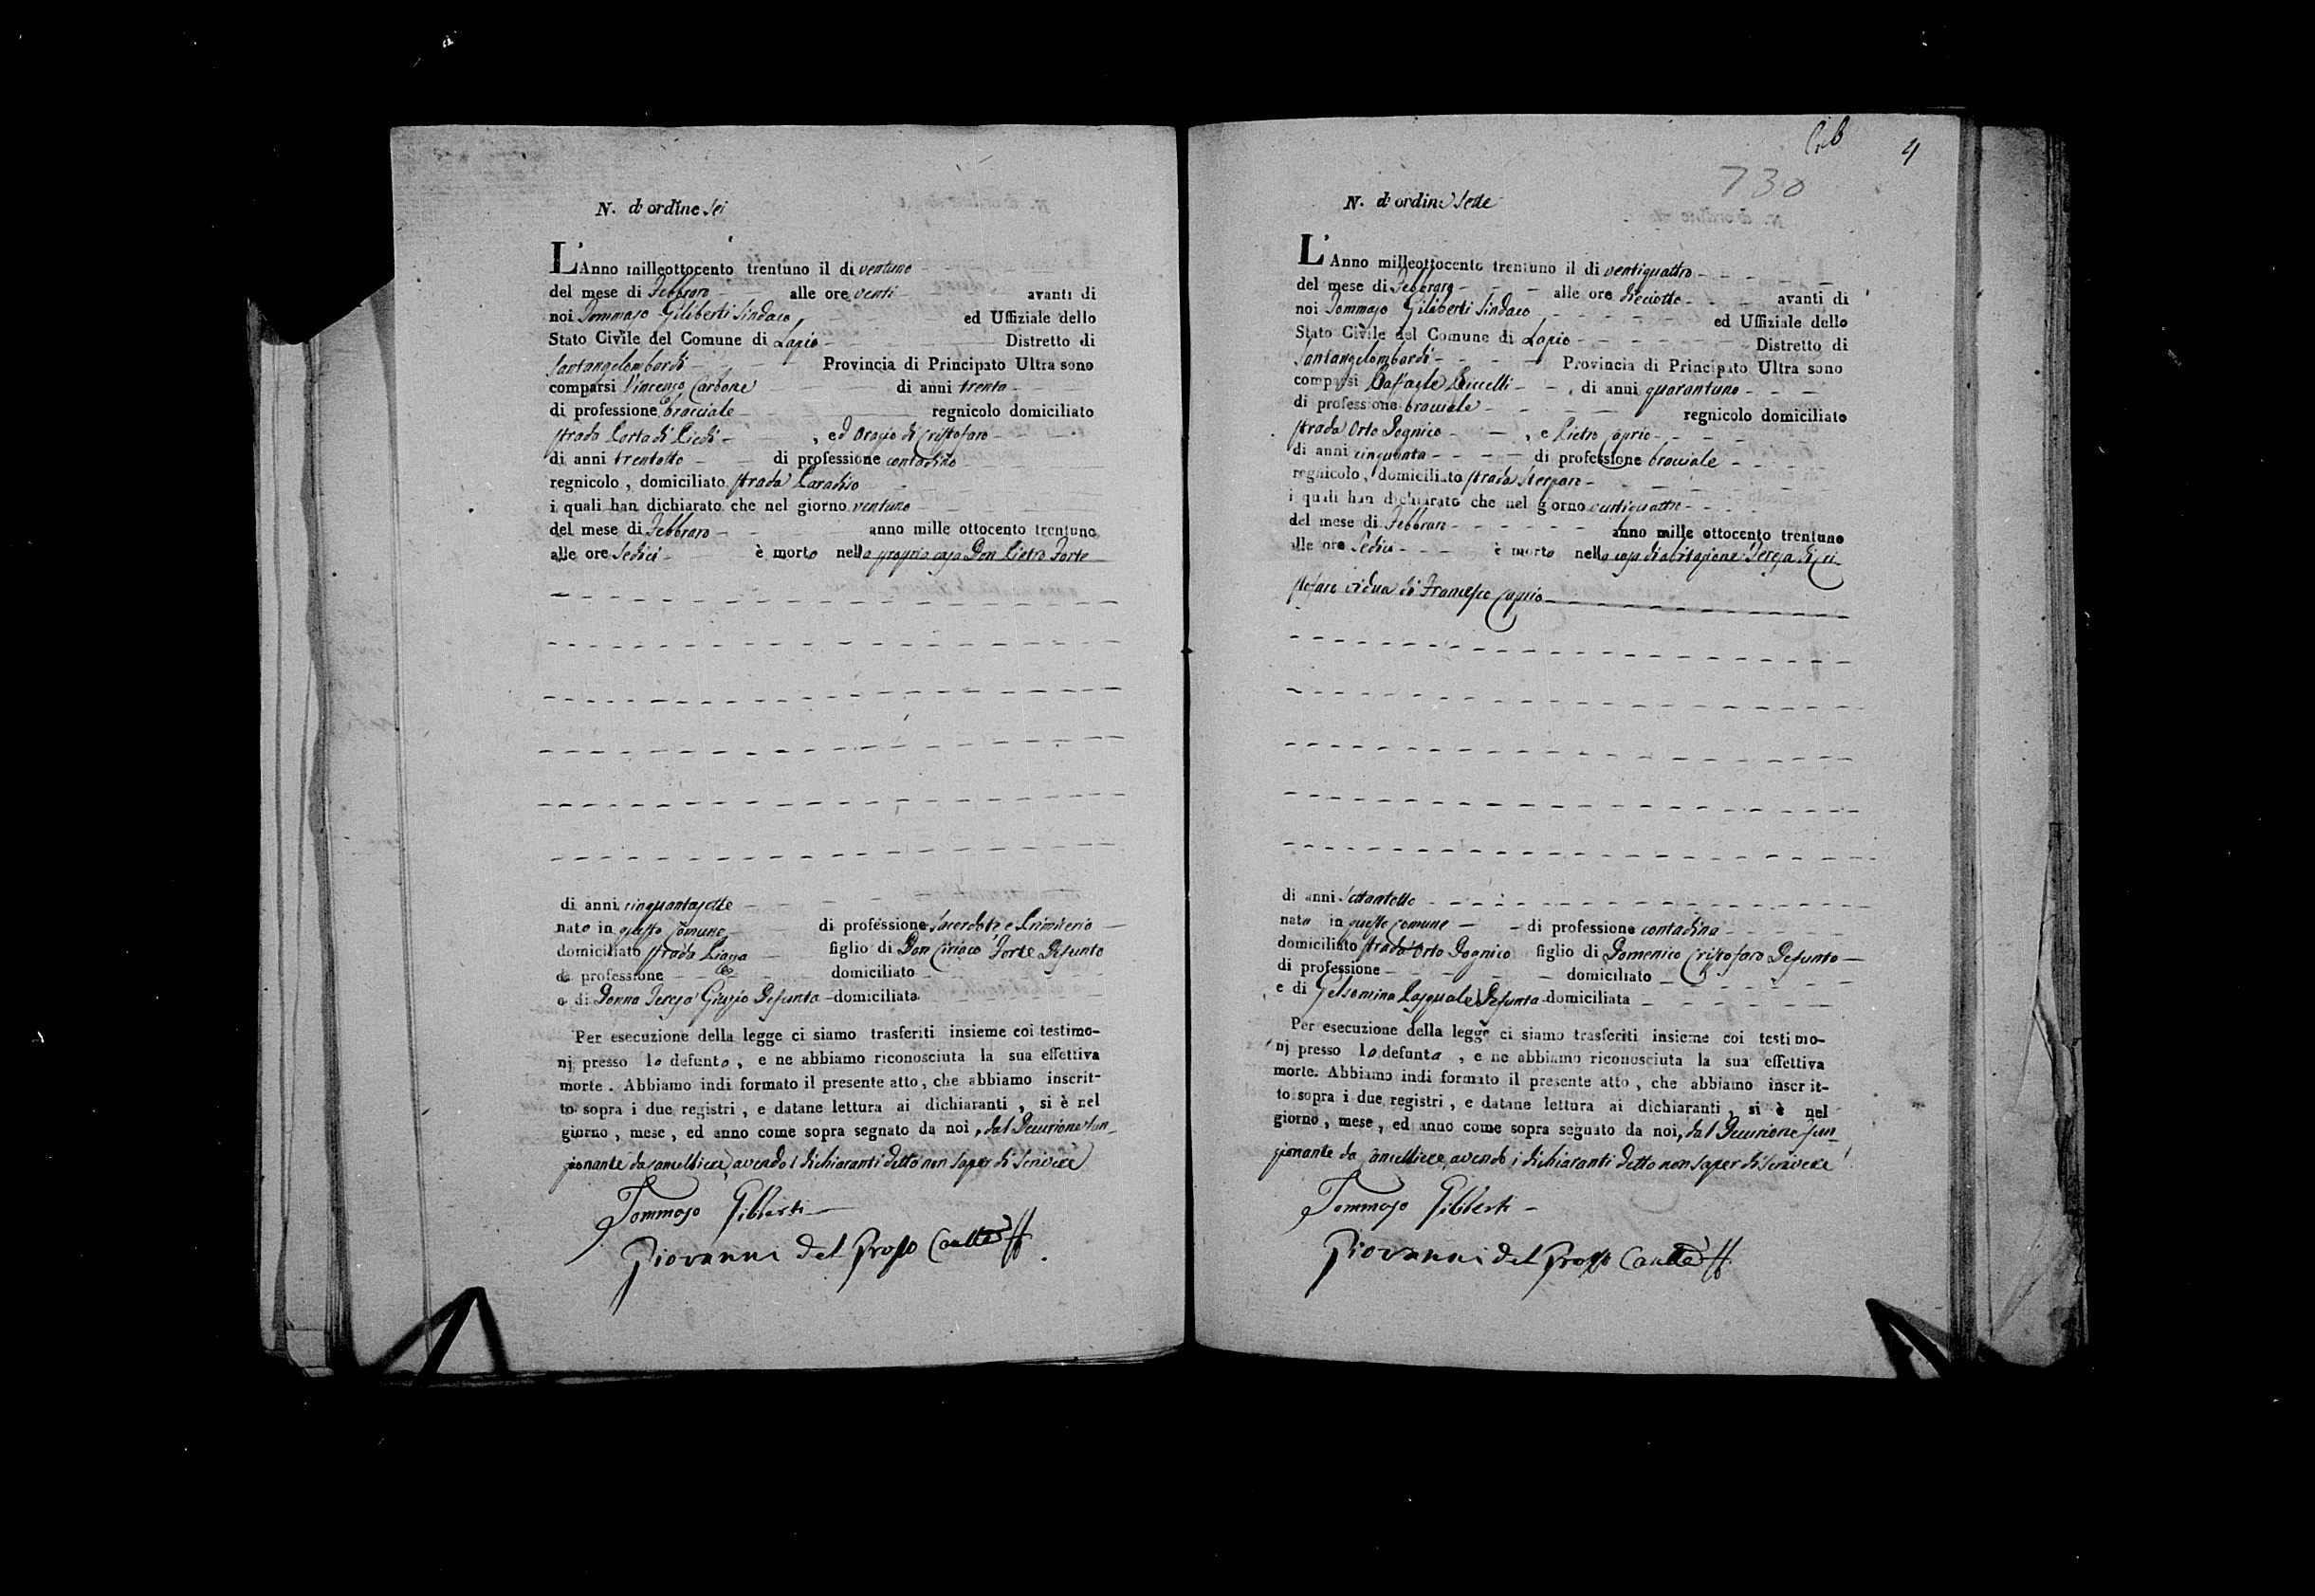 N. d'ordine sei
L'Anno milleottocento trentuno il di ventuno
del mese di Febbraro alle ore venti avanti di
noi Tommaso Giliberti Sindaco ed Uffiziale dello
Stato Civile del Comune di Lapio Distretto di
Santangelombardi Provincia di Principato Ultra sono
comparsi Vincenzo Carbone di anni trenta
di professione bracciale regnicolo domiciliato
strada Porta di Piedi, ed Orazio di Cristofaro
di anni trentotto di professione contadino
regnicolo, domiciliato strada Paradiso
i quali han dichiarato che nel giorno ventuno
del mese di Febbraro anno mille ottocento trentuno
alle ore sedici è morto nella propria casa Don Pietro Forte
di anni cinquantasette
nato in questo comune di professione Sacerdote e Primicerio
domiciliato strada Piazza figlio di Don Ciriaco Forte Defunto
di professione domiciliato
e di Donna Teresa Defunta domiciliata
Per esecuzione della legge ci siamo trasferiti insieme coi testimo-
nj presso lo defunto, e ne abbiamo riconosciuta la sua effettiva
morte. Abbiamo indi formato il presente atto, che abbiamo inscrit-
to sopra i due registri, e datane lettura ai dichiaranti, si è nel
giorno, mese, ed anno come sopra segnato da noi, dal Decurione fun-
zionante da Cancelliere, avendo i dichiaranti detto non saper di scrivere
Tommaso Giliberti
Giovanni del Grosso Canc.re ff.
4
730
N. d'ordine sette
L'Anno milleottocento trentuno il di ventiquattro
del mese di Febbraro alle ore dieciotto avanti di
noi Tommaso Giliberti Sindaco ed Uffiziale dello
Stato Civile del Comune di Lapio Distretto di
Santangelombardi Provincia di Principato Ultra sono
comparsi Raffaele di anni quarantuno
di professione bracciale regnicolo domiciliato
strada Orto Dognico, e Pietro Caprio
di anni cinquanta di professione bracciale
regnicolo, domiciliato strada
i quali han dichiarato che nel giorno ventiquattro
del mese di Febbraro anno mille ottocento trentuno
alle ore sedici è morta nella casa di abitazione Teresa di Cri-
stofaro vidua di Francesco Caprio
di anni settantotto
nata in questo comune di professione contadina
domiciliato strada Orto Dognico figlio di Domenico Cristofaro Defunto
di professione domiciliato
e di Gelsomina Pasquale Defunta domiciliata
Per esecuzione della legge ci siamo trasferiti insieme coi testimo-
nj presso la defunta, e ne abbiamo riconosciuta la sua effettiva
morte. Abbiamo indi formato il presente atto, che abbiamo inscrit-
to sopra i due registri, e datane lettura ai dichiaranti, si è nel
giorno, mese, ed anno come sopra segnato da noi, dal Decurione fun-
zionante da Cancelliere, avendo i dichiaranti detto non saper di scrivere
Tommaso Giliberti
Giovanni del Grosso Canc.re ff.